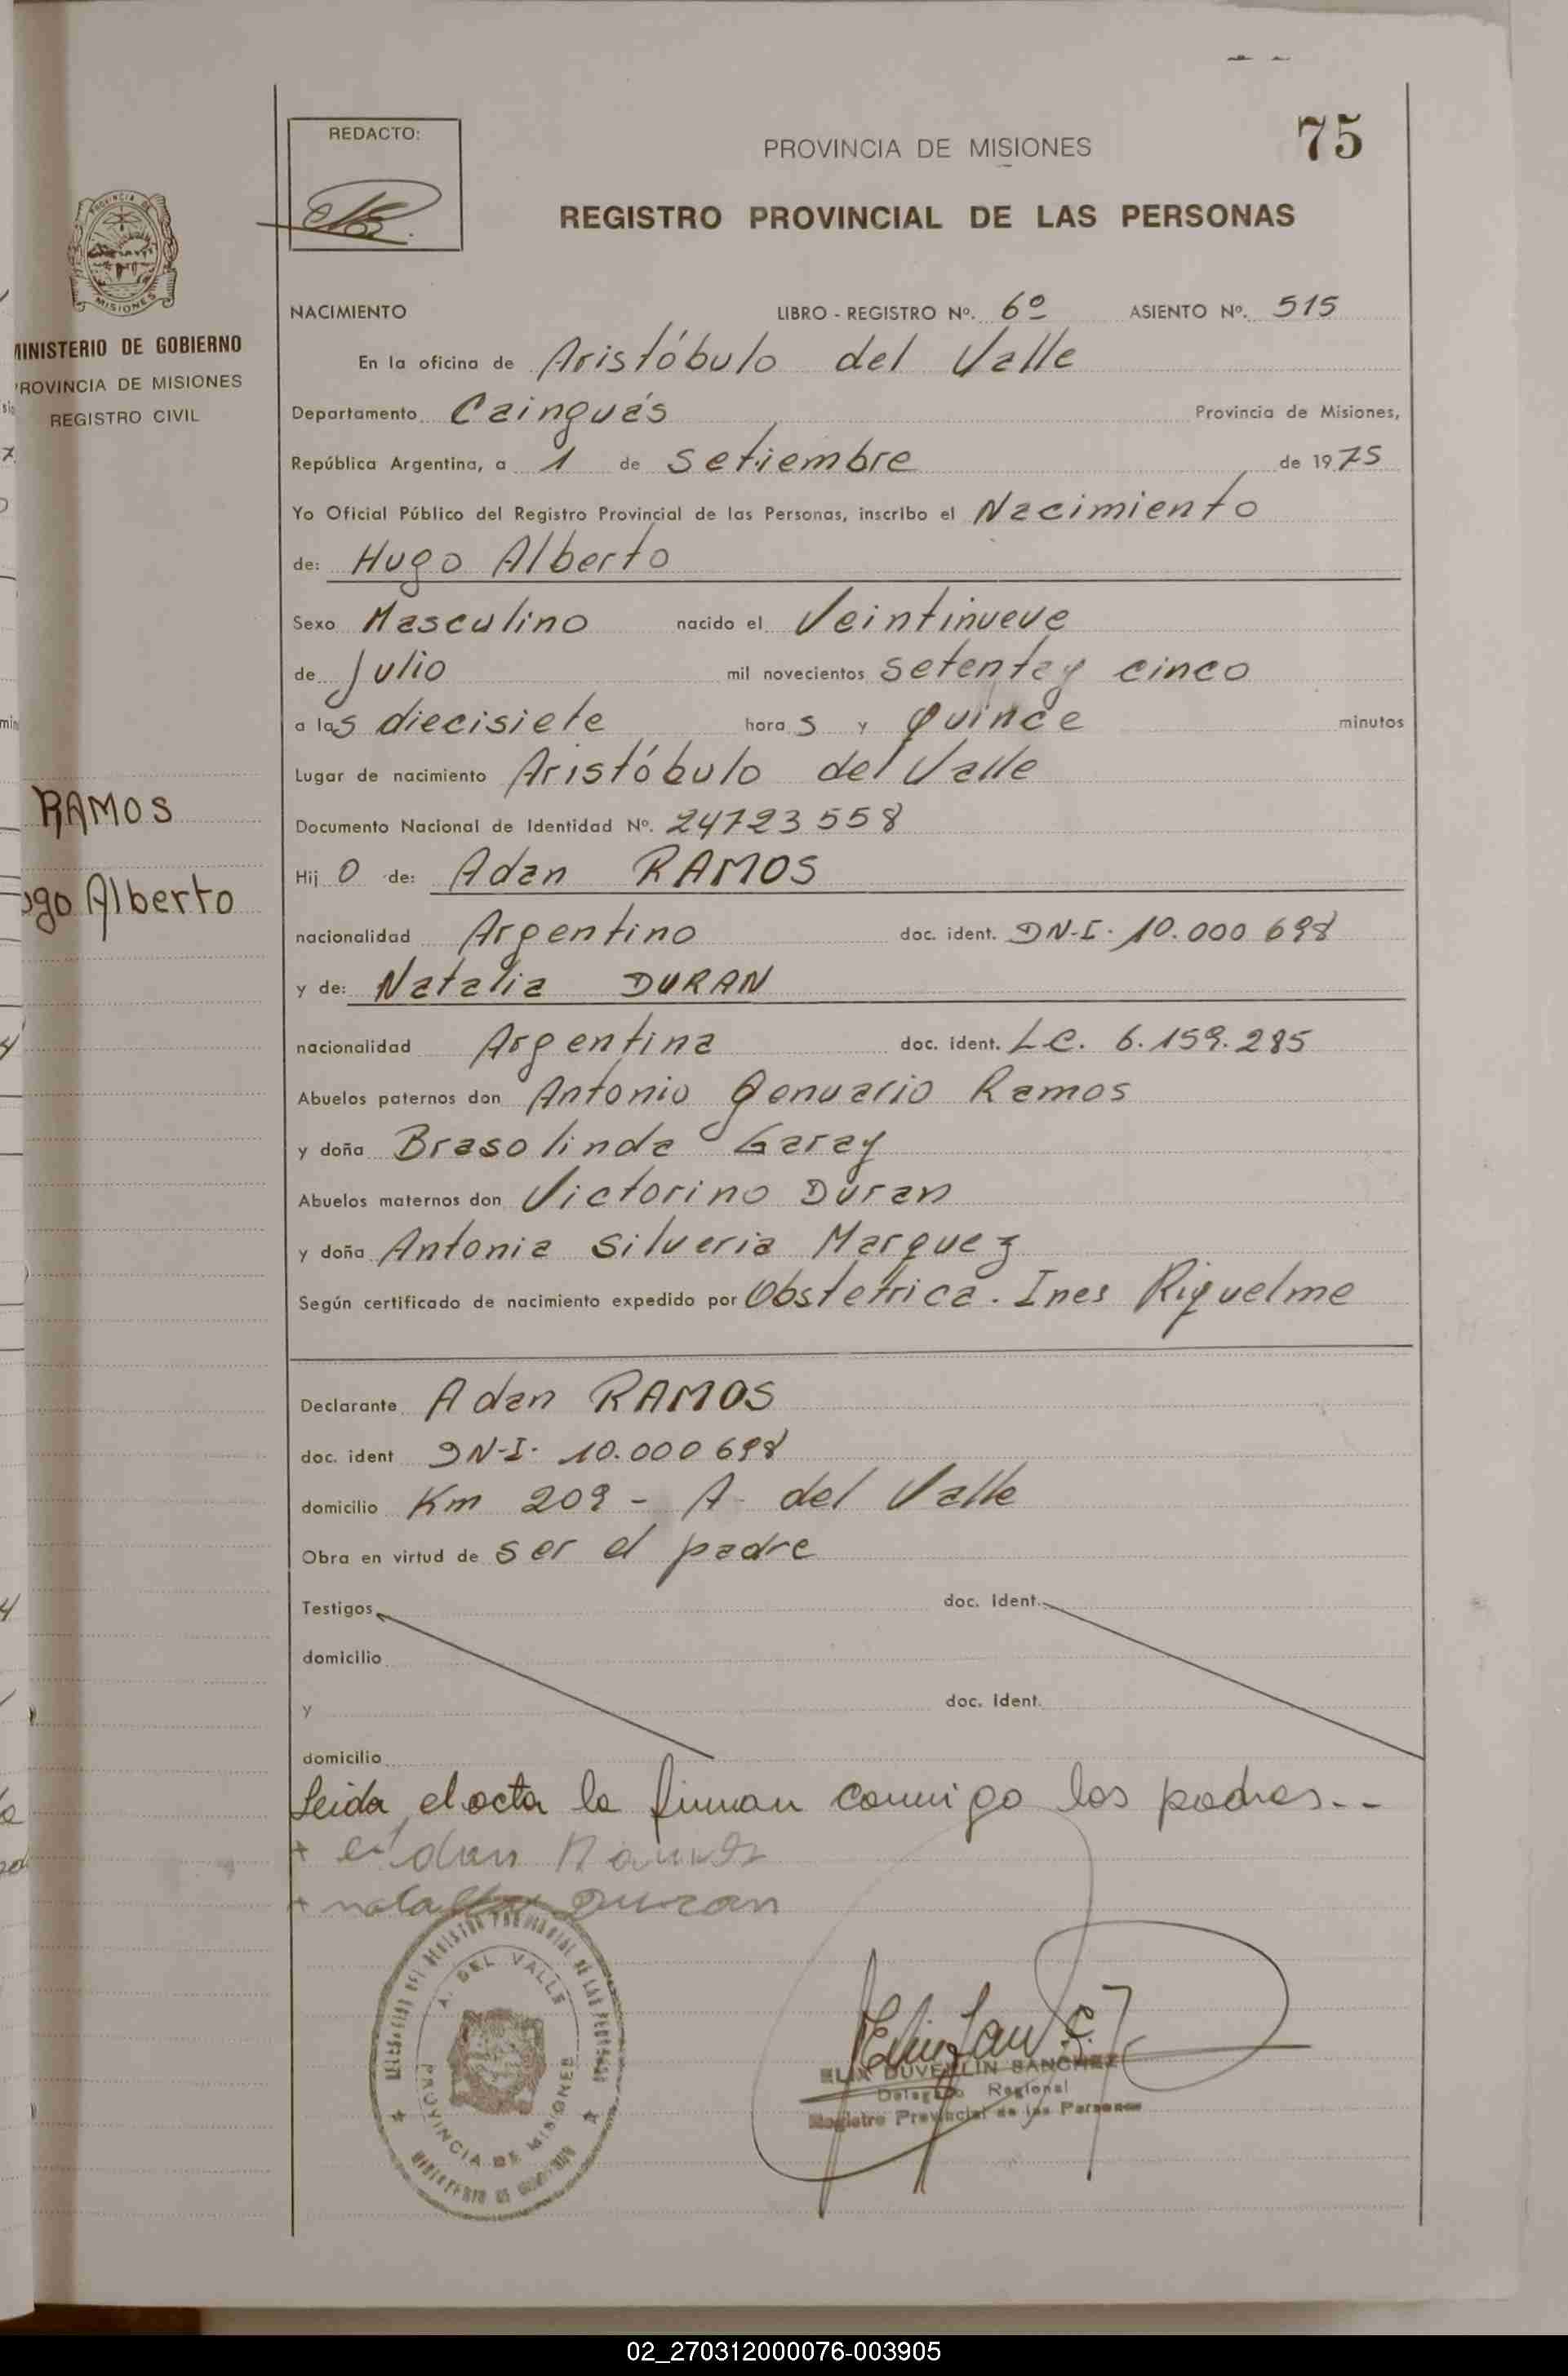 75
REDACTO:
PROVINCIA DE MISIONES
REGISTRO PROVINCIAL DE LAS PERSONAS
PROVINCIA DE
MISIONES
MINISTERIO DE GOBIERNO
PROVINCIA DE MISIONES
REGISTRO CIVIL
NACIMIENTO LIBRO - REGISTRO Nº. 6º ASIENTO Nº. 515
En la oficina de Aristóbulo del Valle
Departamento Cainguás Provincia de Misiones,
República Argentina, a 1 de Setiembre de 1975
Yo Oficial Público del Registro Provincial de las Personas, inscribo el Nacimiento
de: Hugo Alberto
Sexo Masculino nacido el Veintinueve
de Julio mil novecientos setenta y cinco
a las diecisiete horas y quince minutos
Lugar de nacimiento Aristóbulo del Valle
RAMOS
Documento Nacional de Identidad Nº. 24723558
Hijo de: Adan RAMOS
ugo Alberto
nacionalidad Argentino doc. ident. DN-I. 10.000 698
y de: Natalia DURAN
nacionalidad Argentina doc. ident. L.C. 6.159.285
Abuelos paternos don Antonio Genuario Ramos
y doña Brasolinda Garay
Abuelos maternos don Victorino Duran
y doña Antonia Silveria Marquez
Según certificado de nacimiento expedido por Obstetrica. Ines Riquelme
Declarante Adan RAMOS
doc. ident DN-I. 10.000698
domicilio Km 209 - A. del Valle
Obra en virtud de ser el padre
Testigos doc. ident.
domicilio
y doc. ident.
domicilio
Leida el acta la firman conmigo los padres..
+ adan Ramos
+ natalia Duran
DELEGACION DEL REGISTRO PROVINCIAL DE LAS PERSONAS
A. DEL VALLE
PROVINCIA DE MISIONES
MINISTERIO DE GOBIERNO
SANCHEZ
Delegado Regional
Registro Provincial de las Personas
02_270312000076-003905